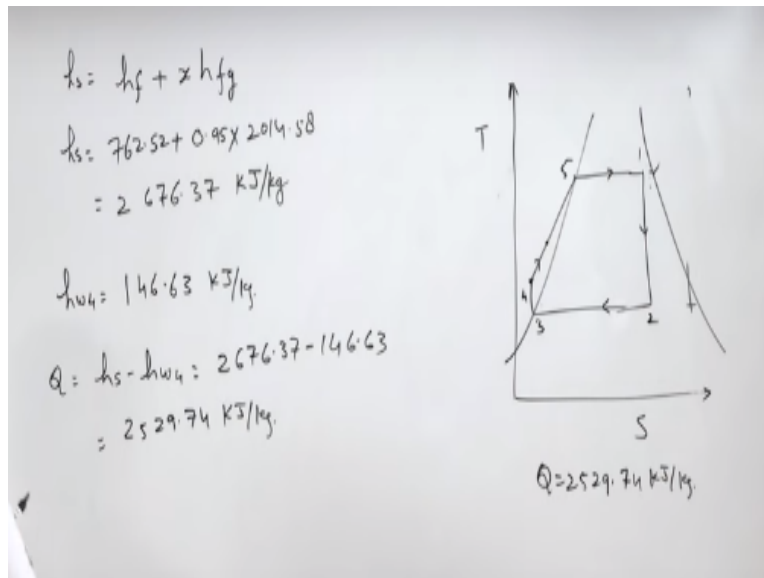 hs= hf + x hfg
hs= 762.52 + 0.95 X 2014.58
= 2 676.37 KJ/kg
hw4= 146.63 KJ/kg.
Q= hs - hw4= 2676.37-146.63
= 2529.74 KJ/kg.
T
5
1
4
3
2
S
Q=2529.74 KJ/kg.